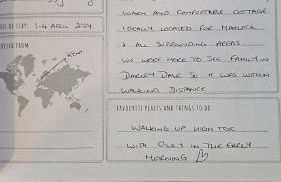 WARM AND COMFORTABLE COTTAGE
OF STAY: 1-4 APRIL 2024
IDEALLY LOCATED FOR MATLOCK
& ALL SURROUNDING AREAS
FROM
KENT
WE WERE HERE TO SEE FAMILY IN
DARLEY DALE SO IT WAS WITHIN
WALKING DISTANCE
FAVOURITE PLACES AND THINGS TO DO
WALKING UP HIGH TOR
WITH ONLY IN THE EARLY
MORNING